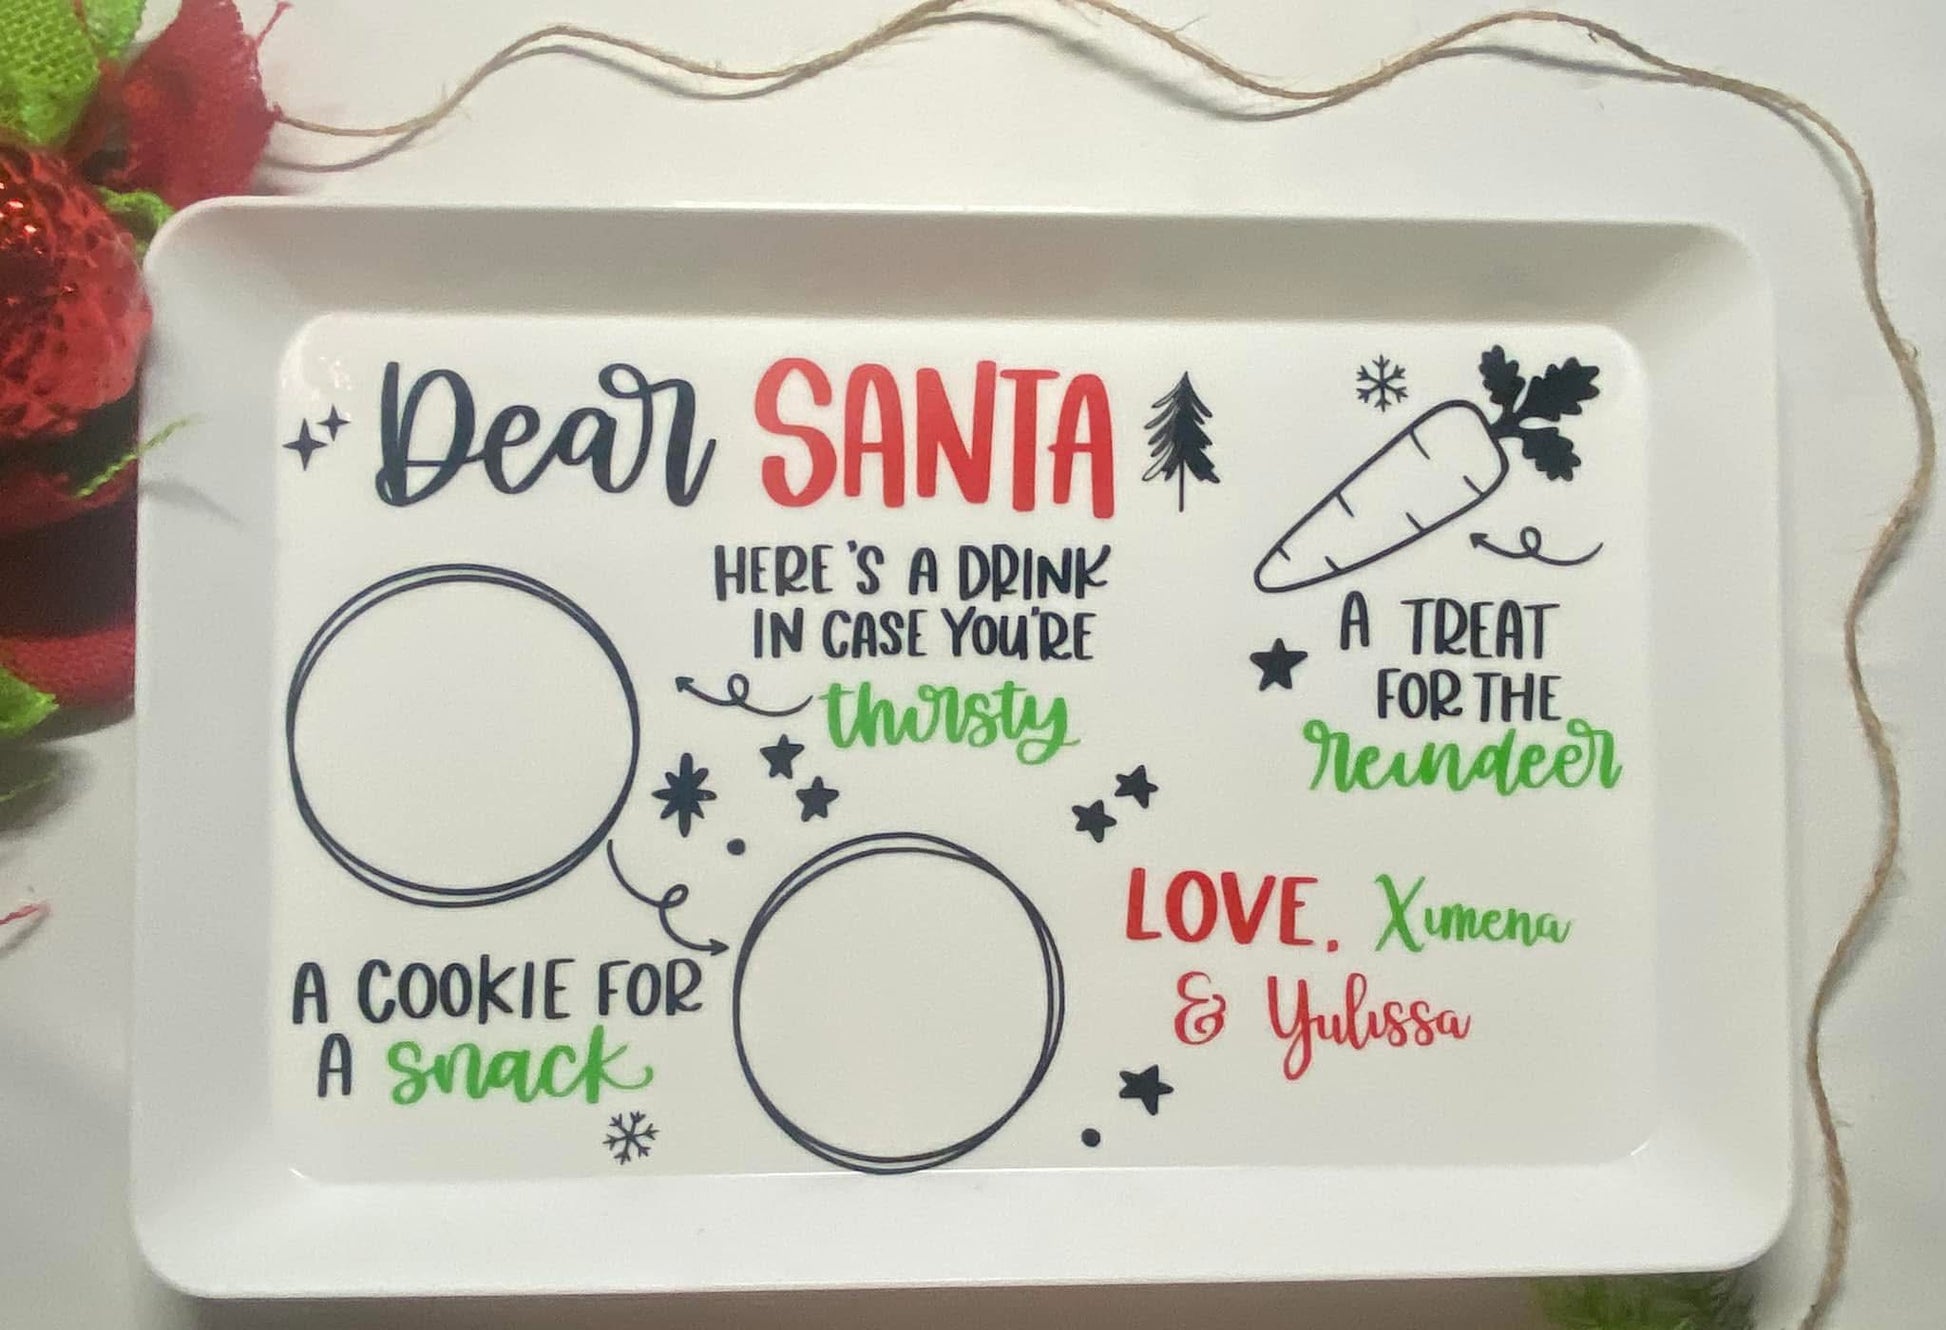 Dear SANTA
HERE'S A DRINK
IN CASE YOU'RE
thirsty
A TREAT
FOR THE
reindeer
A COOKIE FOR
A snack
LOVE, Ximena
& Yulissa